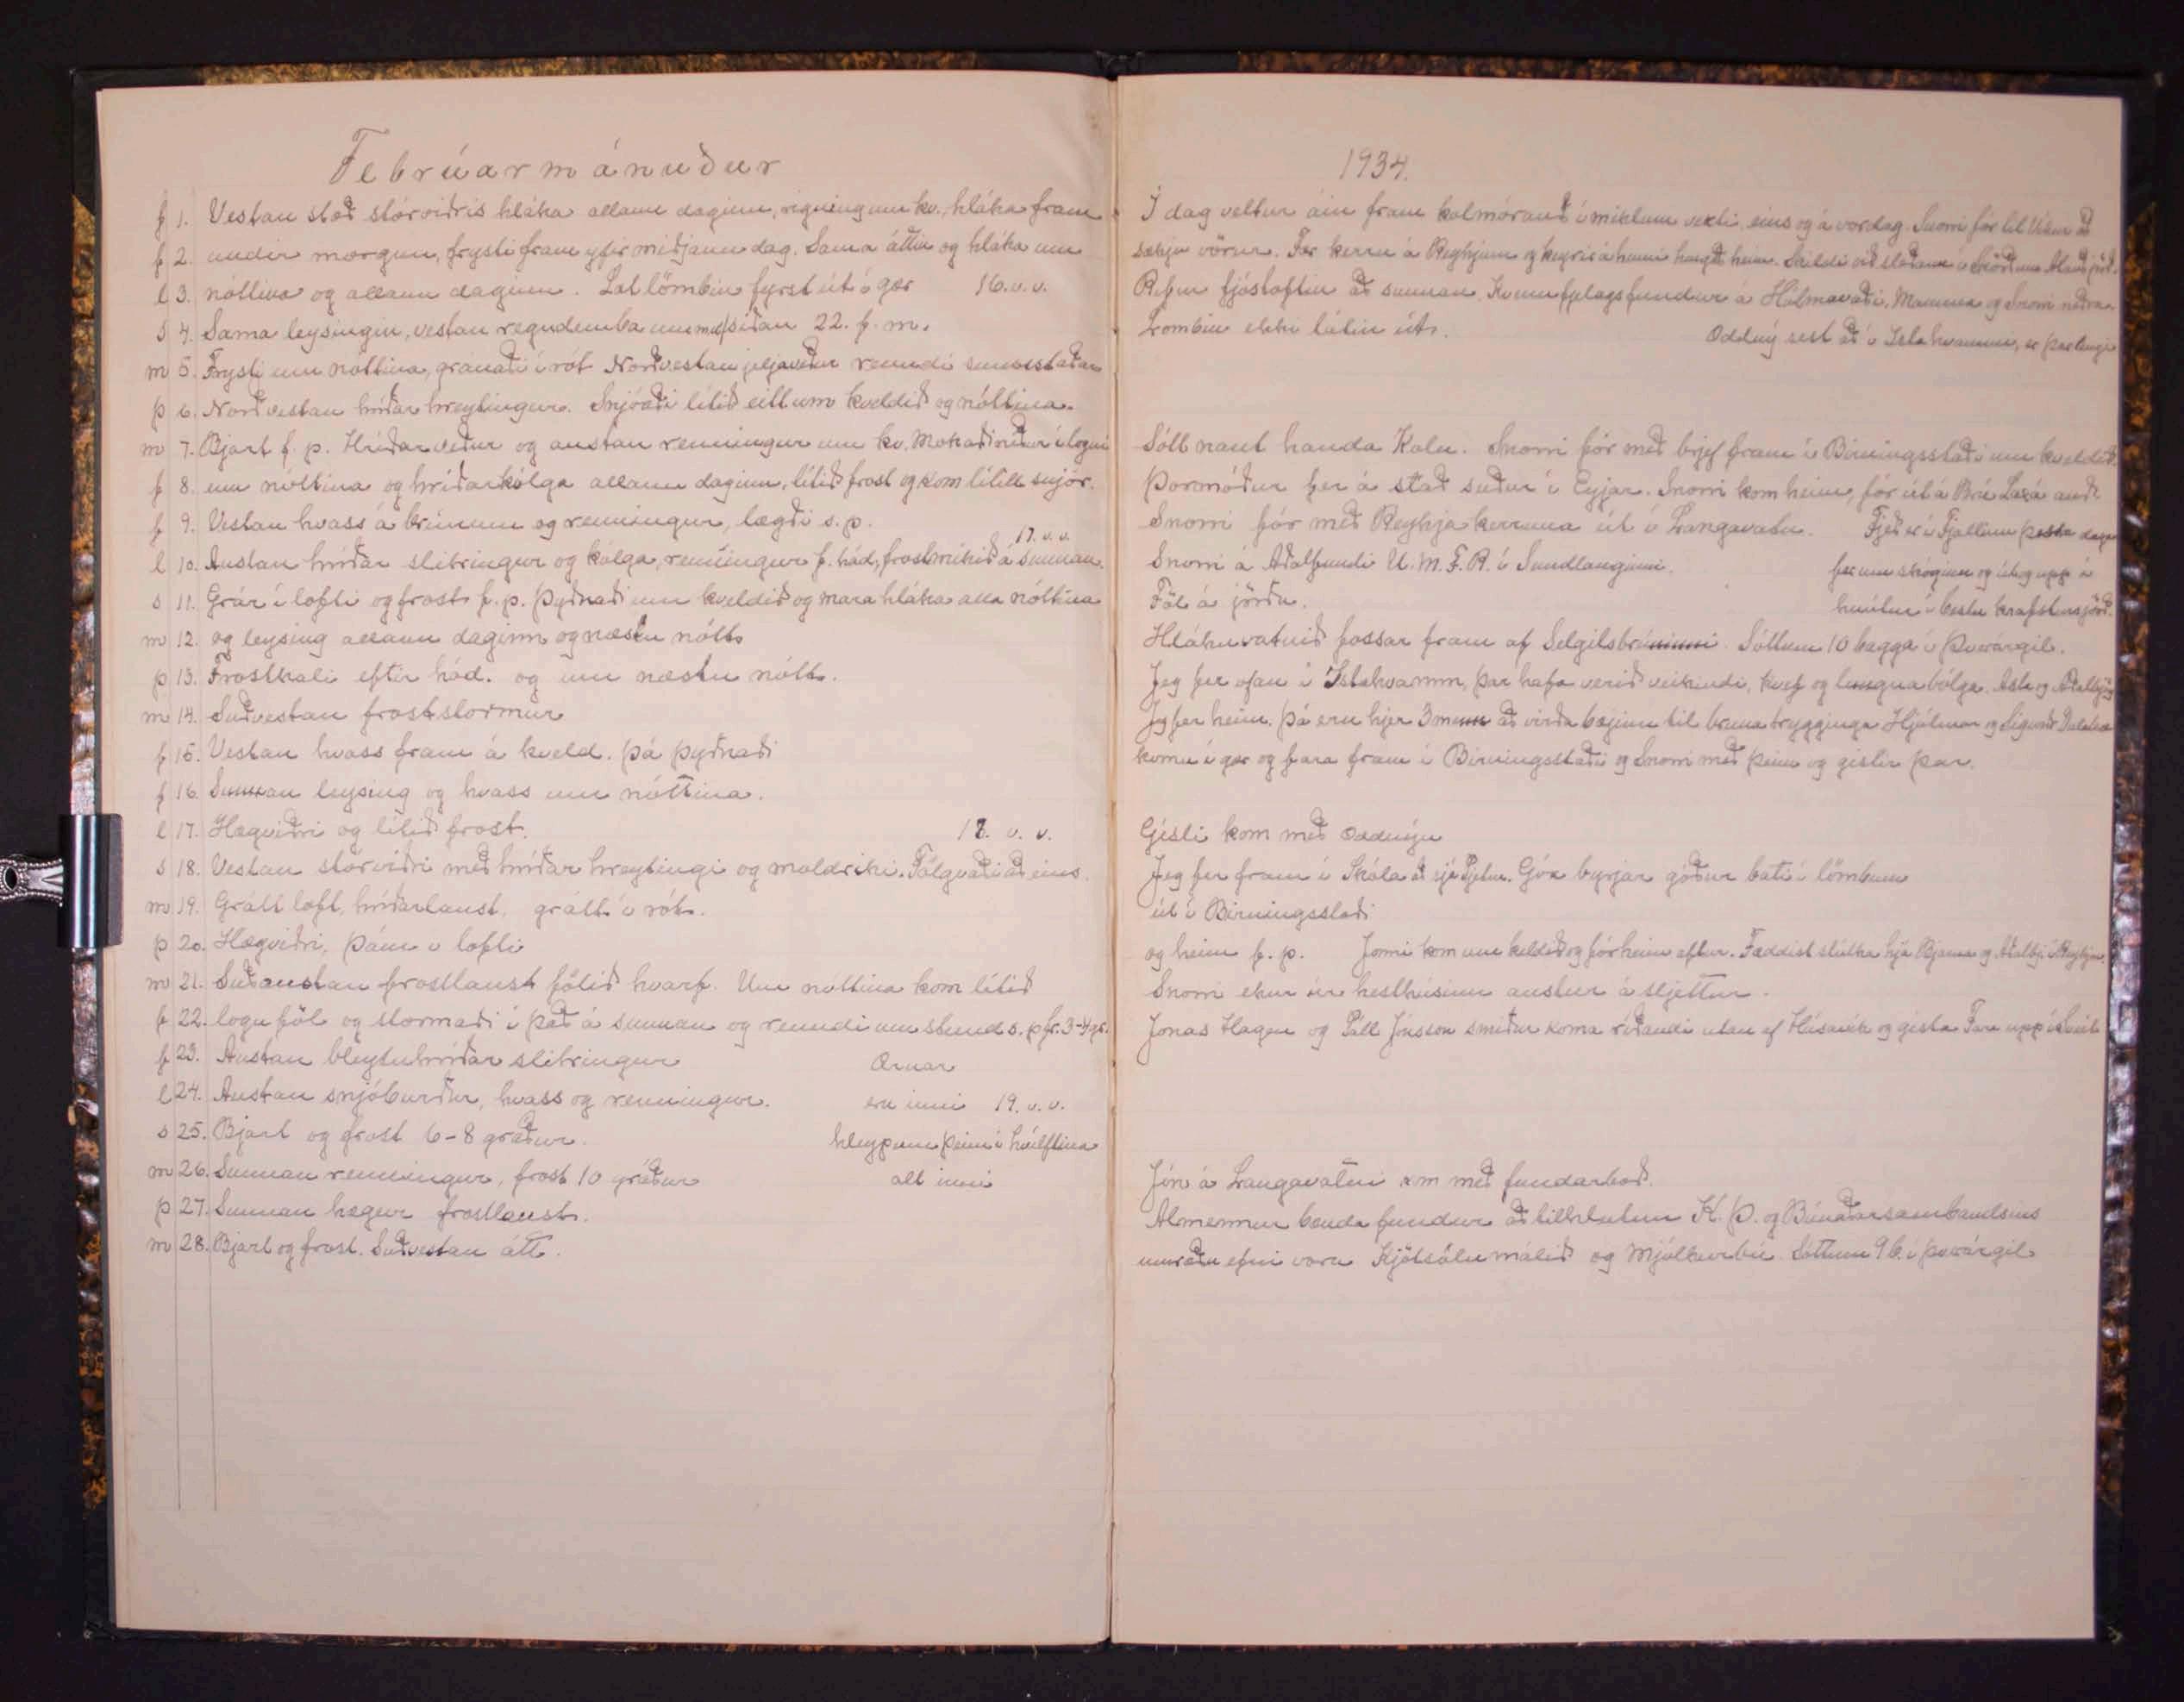 Febrúarmánuður
f 1. Vestan stórviðris hláka allann daginn, rigning um kv. hláka fram
f 2. undir morgun, frysti fram yfir miðjann dag. Sama áttin og hláka um
l 3. nóttina og allann daginn. Lat lömbin fyrst út í gær 16. v. v.
s 4. Sama leysingin, vestan regndemba síðan 22. f. m.
m 5. Frysti um nóttina, gránaði í rót Norðvestan jeljaveður renndi sumstaðar
þ 6. Norðvestan hríðar hreytingur. Snjóaði lítið eitt um kveldið og nóttina.
m 7. Bjart f. p. Hríðarveður og austan renningur um kv. Mokaði niður í logni
f 8. um nóttina og hríðarkólga allann daginn, lítið frost og kom lítill snjór.
f 9. Vestan hvass á brúnum og renningur, lægði s. p.
17. v. v.
l 10. Austan hríðar slitringur og kólga, renningur f. hád, frostmikið á sunnan.
s 11. Grár í lofti og frost f. p. Þyðnaði um kveldið og mara hláka alla nóttina
m 12. og leysing allann daginn og næstu nótt
þ 13. Frostkali eftir hád. og um næstu nótt.
m 14. Suðvestan froststormur
f 15. Vestan hvass fram á kveld. þá þyðnaði
f 16. Sunnan leysing og hvass um nóttina.
l 17. Hægviðri og lítið frost. 18. v. v.
s 18. Vestan stórviðri með hríðar hreytingi og moldriki. Fölgvaði að eins.
m 19. Grátt loft, hríðarlaust, grátt í rót.
þ 20. Hægviðri, þám í lofti
m 21. Suðaustan frostlaust fölið hvarf. Um nóttina kom lítið
f 22. logn föl og stormaði í það á sunnan og renndi um stund s. p. fr. 3-4 gr.
f 23. Austan bleytuhríðar slitringur Ærnar
l 24. Austan snjóburður, hvass og renningur. eru inni 19. v. v.
s 25. Bjart og frost 6-8 gráður. hleypum þeim í hvilftina
m 26. Sunnan renningur, frost 10 gráður allt inni
þ 27. Sunnan hægur frostlaust.
m 28. Bjart og frost. Suðvestan átt.
1934.
Í dag veltur áin fram kolmórauð í miklum vexti eins og á vordag. Snorri fór til Víkur að
sækja vörur. Fær kerru á Reykjum og keyrir á henni hingað heim. Skildi við sleðann
Refur að sunnan. Kvennfjelagsfundur á Hólmavaði. Mamma og Snorri
Lömbin ekki látin út. Oddný sest að í Ystahvammi, er þar lengi
Sótt naut handa Kolu. Snorri fór með brjef fram í Birningsstaði um kveldið.
Þormóður fer á stað suður í Eyjar. Snorri kom heim, fór út á Brú Laxá
Snorri fór með Reykjakerruna út í Langavatn. Fjeð er í Fjallinu þessa daga
Snorri á Aðalfundi U. M. F. R. í Sundlauginni. fer um skóginn og út og upp í
Föl á jörðu. hnútur í bestu krafstursjörð.
Hlákuvatnið fossar fram af Selgilsbrúninni. Sóttum 10 bagga í Þverárgil.
Jeg fer ofan í Ystahvamm, þar hafa verið veikindi, kvef og lungnabólga. Asta og Aðalbjörg
Jeg fer heim. Þá eru hjer 3 menn að virða bæjinn til bruna trygginga Hjálmar og Sigurður
komu í gær og fara fram í Birningsstaði og Snorri með þeim og gistir þar.
Gísli kom með Oddnýju
Jeg fer fram í Skóla að sjá Pjetur. Góa byrjar góður bati í lömbum
út í Birningsstaði
og heim f. p. kom um kveldið og fór heim aftur. Fæddist stúlka hjá Bjarna og Aðalbj. í Reykjum.
Snorri ekur úr hesthúsinu austur á sljettur.
Jonas Hagen og Páll Jónsson smiður koma ríðandi utan af Húsavík og gista. Fara upp í Sveit
Jón á Langavatni kom með fundarboð.
Almennur bænda fundur að tilhlutun K. Þ. og Búnaðarsambandsins
umræðu efni voru Kjötsölumálið og Mjólkurbú. Sóttum 9 b. í Þverárgil